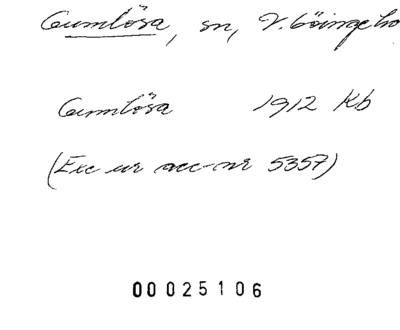 Gumlösa, sn, V. Göinge hd
Gumlösa 1912 Kb
(Exc ur acc-nr 5357)
00025106